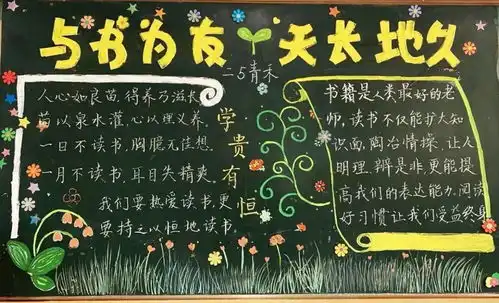 与书为友 天长地久
二5青禾
人心如良苗,得养乃滋长
苗以泉水灌,心以理义养。
一日不读书,胸臆无佳想。
一月不读书,耳目失精爽。
我们要热爱读书,更
要持之以恒地读书。
学贵有恒
书籍是人类最好的老
师,读书不仅能扩大知
识面,陶冶情操,让人
明理,辩是非,更能提
高我们的表达能力,阅读
好习惯让我们受益终身